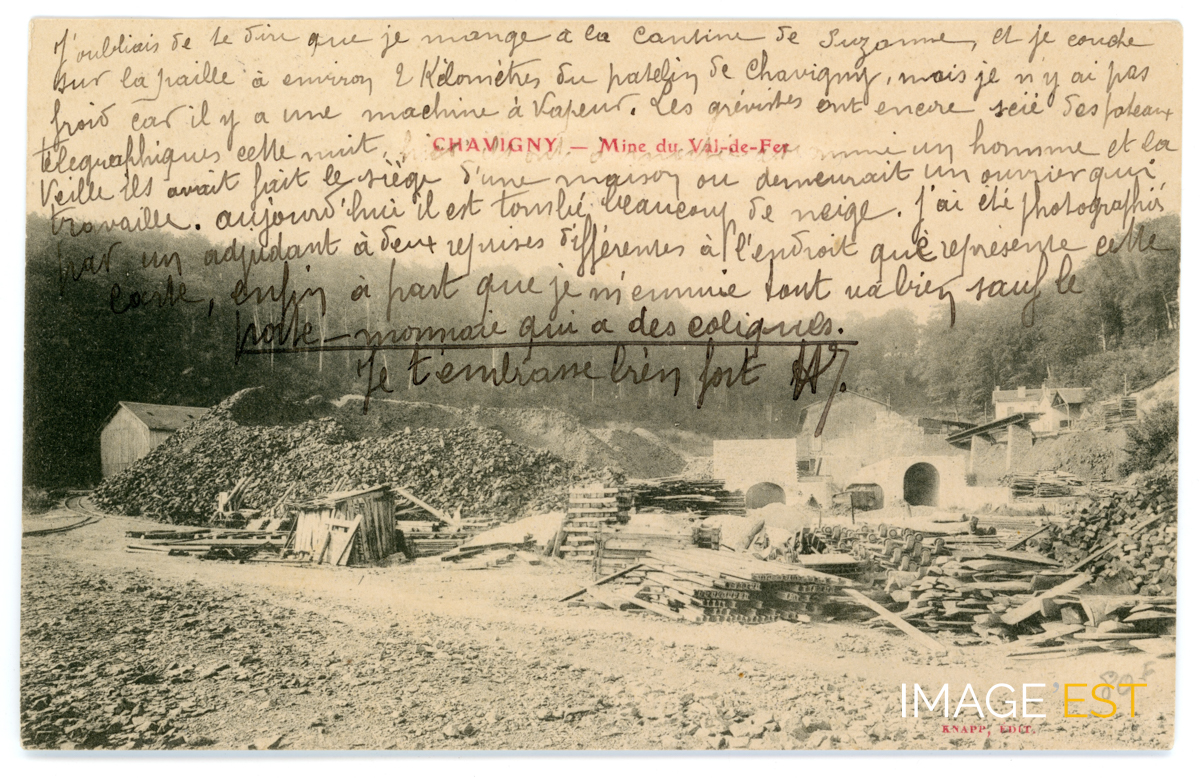 J'oubliais de te dire que je mange à la cantine de Suzanne, et je couche
sur la paille à environ 2 Kilomètres du patelin de Chavigny, mais je n'y ai pas
froid car il y a une machine à vapeur. Les grévistes ont encore scié des poteaux
télégraphiques cette nuit, un homme et la
CHAVIGNY — Mine du Val-de-Fer
Veille ils avait fait le siège d'une maison ou demeurait un ouvrier qui
travaille. aujourd'hui il est tombé beaucoup de neige. j'ai été photographié
par un adjudant à deux reprises différentes à l'endroit que représente cette
carte, enfin à part que je m'ennuie tout va bien sauf le
porte-monnaie qui a des coliques.
Je t'embrasse bien fort
IMAGE EST
KNAPP, EDIT.